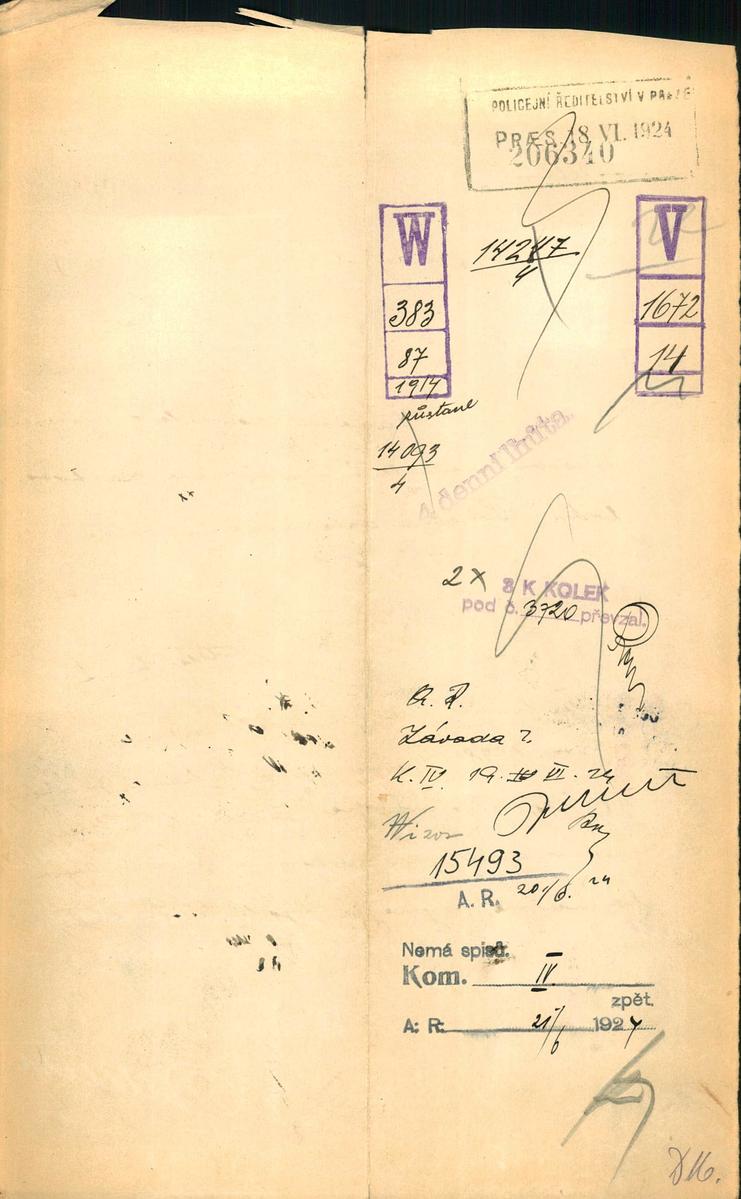 POLICEJNÍ ŘEDITELSTVÍ V PRAZE
PRÆS. 18 VI. 1924
206340
W
383
87
1914
V
1672
14
14247
4
zůstane
14093
4
4 denní lhůta.
2x 8 K KOLEK
pod č. 3720 převzal.
A. P.
Závada ?
K. IV. 19. VI. 24
15493
A. R. 20/6. 24
Nemá spisů.
Kom. IV
zpět.
A: R: 21/6 1924